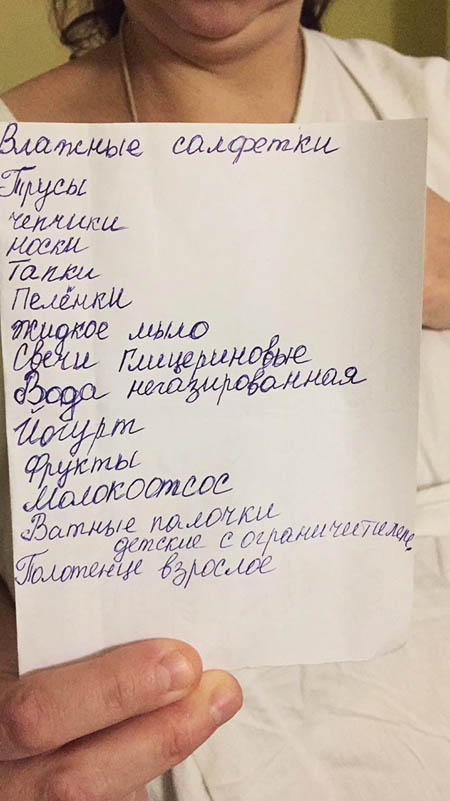 Влажные салфетки
Трусы
чепчики
носки
Тапки
Пелёнки
жидкое мыло
Свечи глицериновые
Вода негазированная
Йогурт
Фрукты
Молокоотсос
Ватные палочки
детские с ограничетилеле
Полотенце взрослое